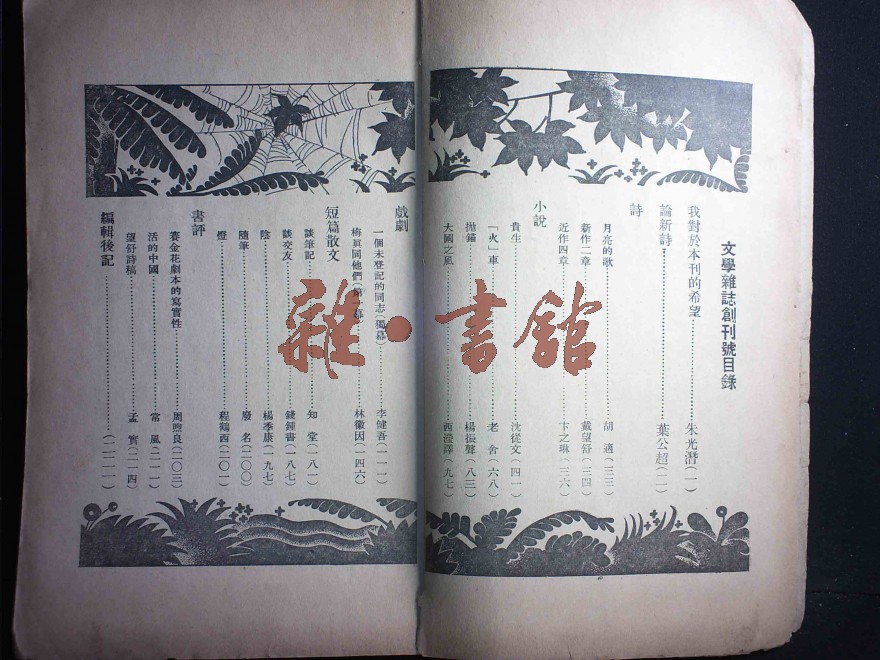 文學雜誌創刊號目錄
我對於本刊的希望……朱光潛(一)
論新詩……葉公超(一一)
詩
月亮的歌……胡適(三三)
新作二章……戴望舒(三四)
近作四章……卞之琳(三六)
小說
貴生……沈從文(四一)
「火」車……老舍(六八)
拋錨……楊振聲(八三)
大國之風……西瀅譯(九七)
戲劇
一個未登記的同志(獨幕)……李健吾(一一一)
梅真同他們(第一幕)……林徽因(一四六)
短篇散文
談筆記……知堂(一八一)
談交友……錢鍾書(一八七)
陰……楊季康(一九七)
隨筆……廢名(二〇〇)
燈……程鶴西(二〇一)
書評
賽金花劇本的寫實性……周煦良(二〇三)
活的中國……常風(二一一)
望舒詩稿……孟實(二一四)
編輯後記……(二二一)
雜·書館